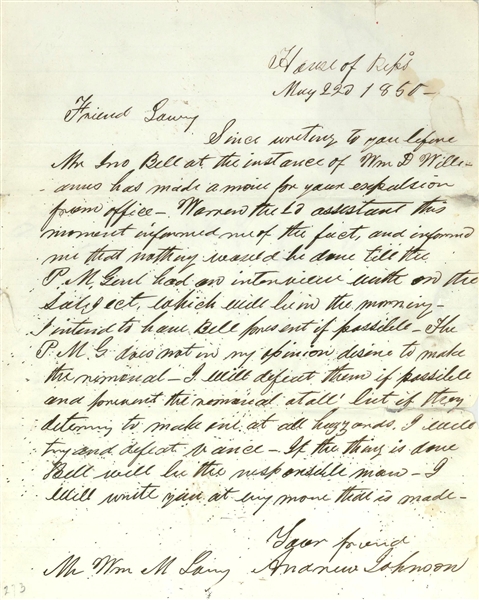 House of Reps
May 22d 1850-
Friend Lowry
Since writing to you before
Mr Jno Bell at the instance of Wm D Willi-
-ams has made a move for your expulsion
from office - Warren the 2d assistant this
moment informed me of the fact, and informed
me that nothing would be done till the
P. M. Genl had an interview with on the
subject, which will be in the morning -
I intend to have Bell present if possible - The
P. M. G. does not in my opinion desire to make
the removal - I will defeat them if possible
and prevent the removal at all but if they
determin to make one at all hazzards, I will
try and defeat Vance - If the thing is done
Bell will be the responsible man - I
Will write you at any move that is made -
Your friend
Mr Wm M Lowry Andrew Johnson
273